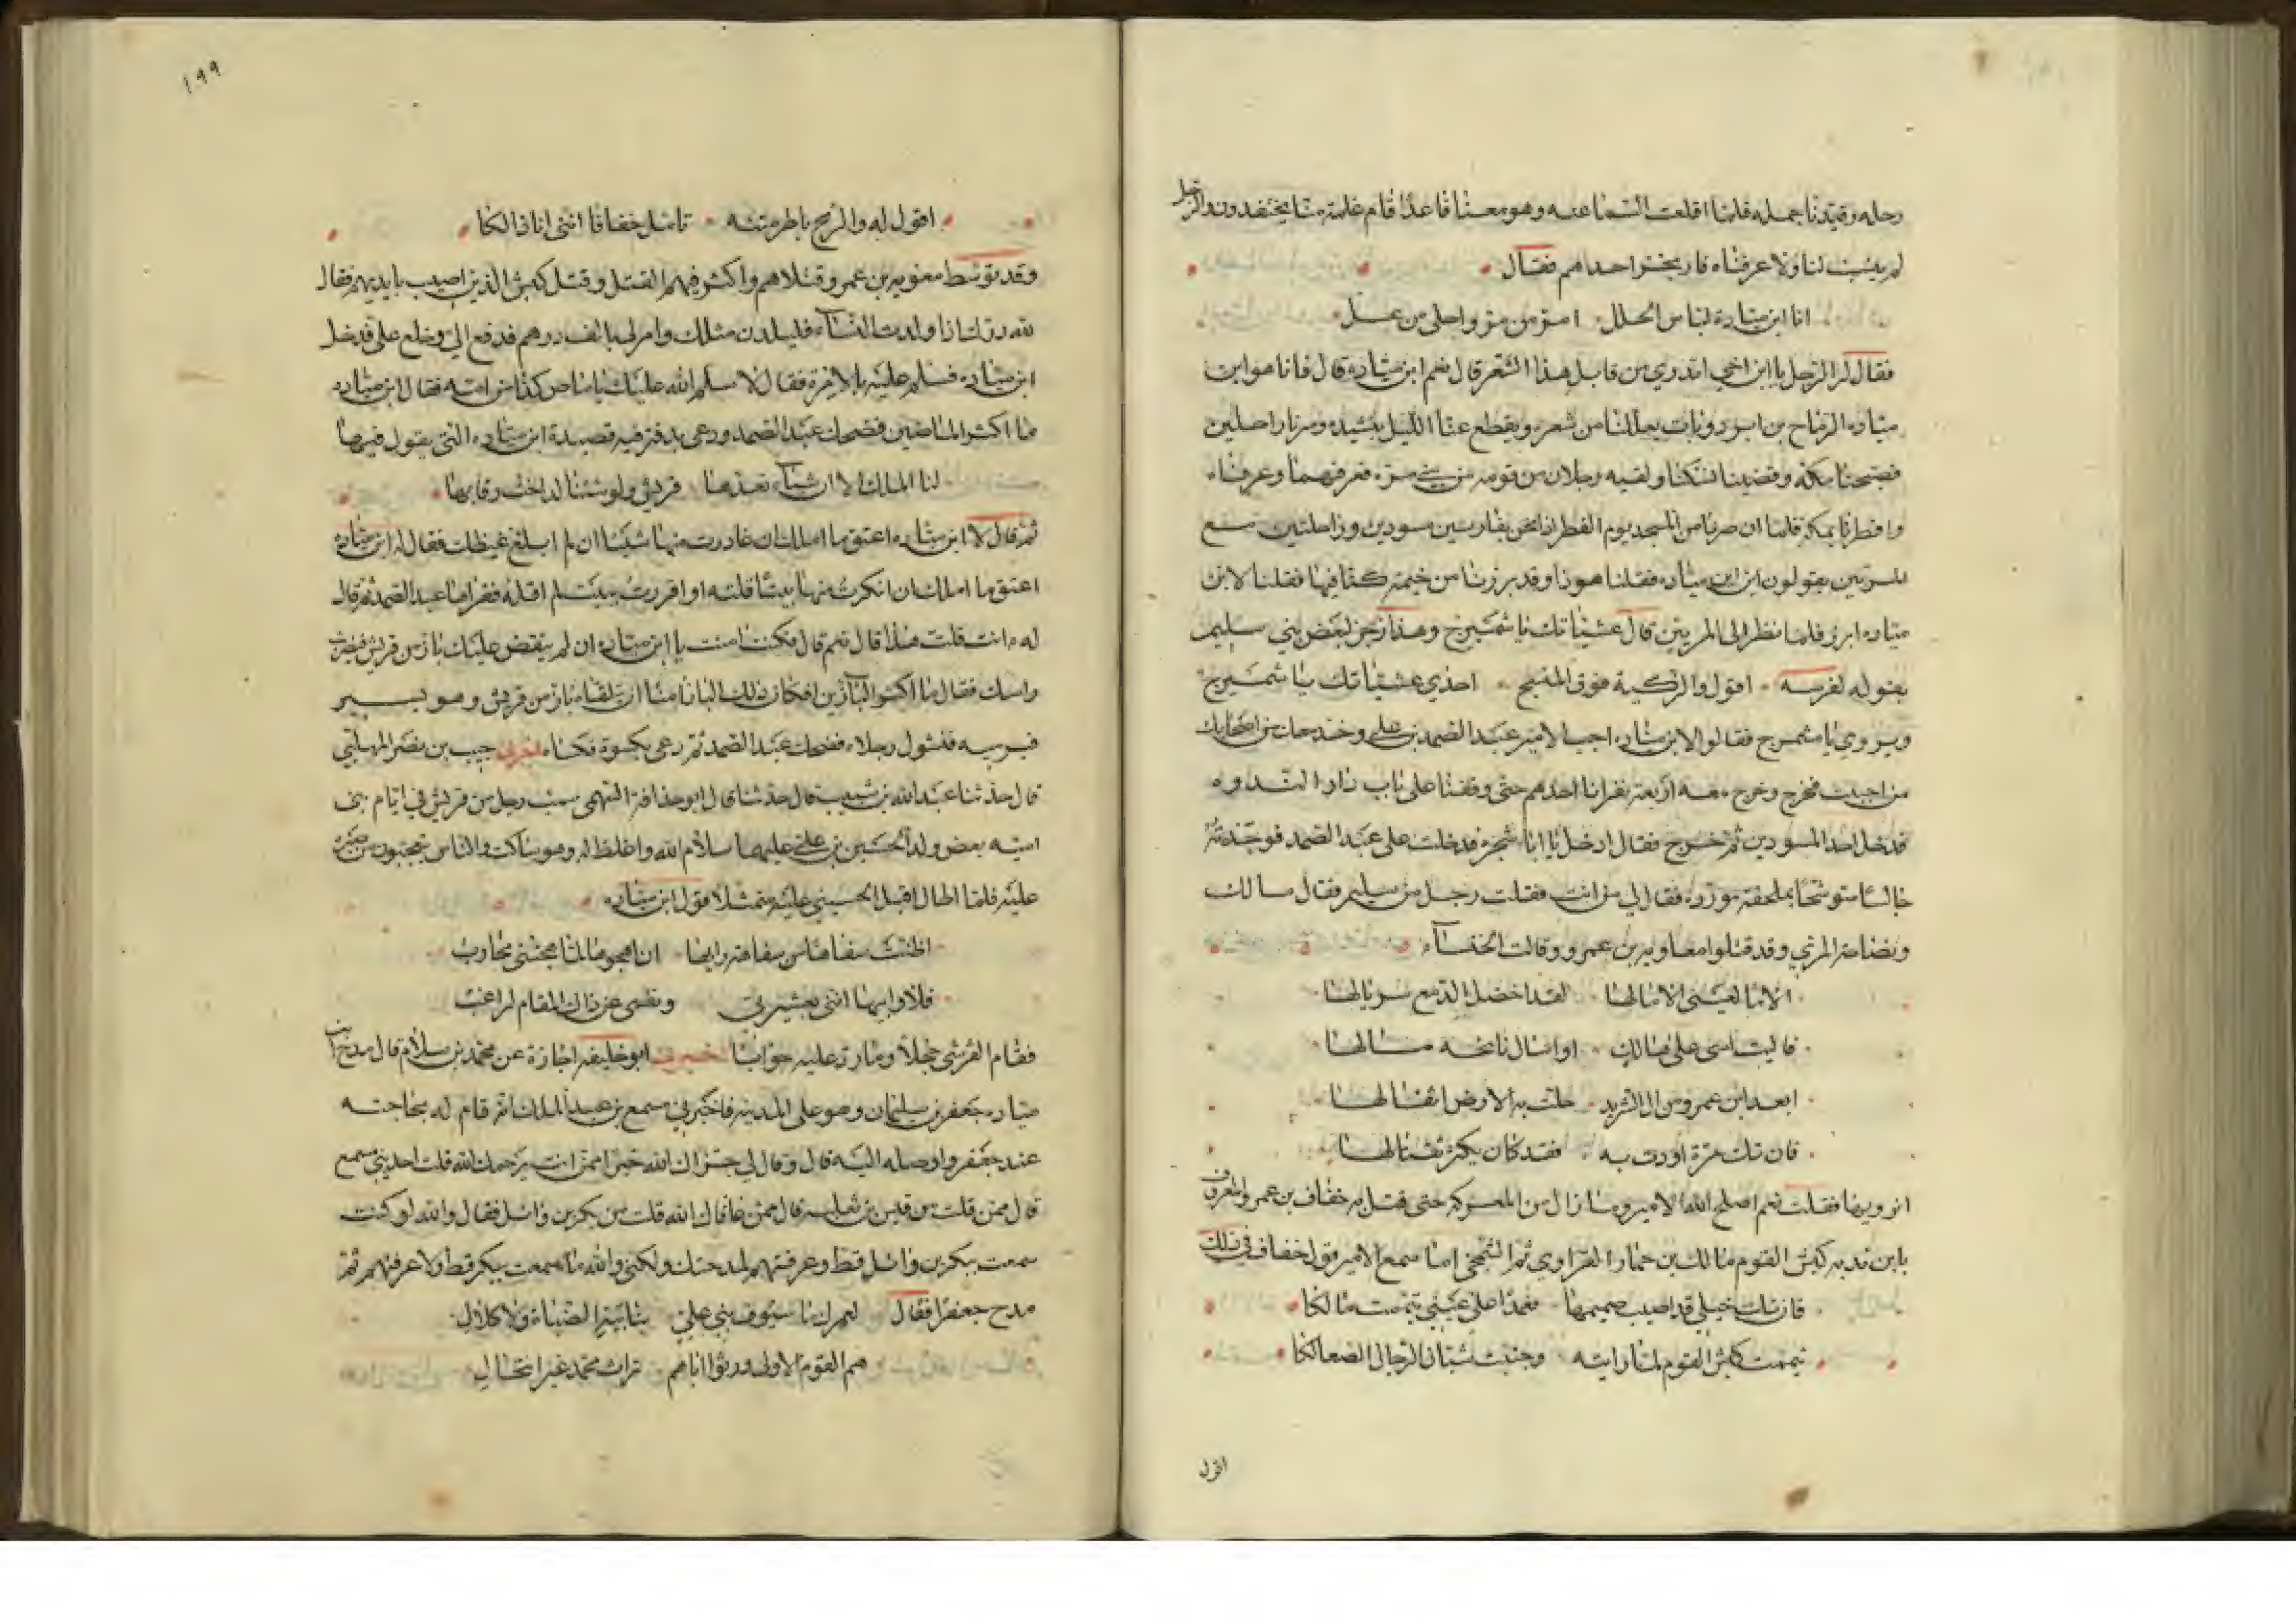 رحله وقيدنا جمله فلما اقلعت السما عنه وهو معنا قاعدا قام غلمة منا يختفدون والرجل
لم ينسب لنا ولا عرفناه فارتجز احدهم فقال
انا ابن ميادة لباس الحلل امر من مر واحلى من عسل
فقال له الرجل يا ابن اخي اتدري من قايل هذا الشعر قال نعم ابن ميادة قال فانا هو ابن
ميادة الرماح بن ابرد وبات يعللنا من شعره ويقطع عنا الليل بنشيده وسرنا راحلين
فصبحنا مكة وقضينا نسكنا ولقيه رجلان من قومه من بني مرة فعرفهما وعرفناه
وافطرنا بمكة فلما ان صرنا من المسجد يوم الفطر اذا نحن بفارسين مسودين وراجلين مع
المريين يقولون اين ابن ميادة فقلنا هو ذا وقد برزنا من خيمة كنا فيها فقلنا لابن
ميادة ابرز فلما نظر الى المريين قال عشياتك يا شميرج وهذا رجز لبعض بني سليم
يقوله لفرسه اقول والركبة فوق المنسج احذي عشياتك يا شميرج
ويروي يا مشمرج فقالوا لابن ميادة اجب الامير عبد الصمد بن علي وخذ معك من اصحابك
من احببت فخرج وخرج معه اربعة نفر انا احدهم حتى وقفنا على باب دار الندوه
فدخل احد المسودين ثم خرج فقال ادخل يا ابا شجرة فدخلت على عبد الصمد فوجدته
جالسا متوشحا بملحفة موردة فقال لي من انت فقلت رجل من سليم فقال مالك
وبضاعة المري وقد قتلوا معاوية بن عمرو وقالت الخنساء
الا ما لعيني الا ما لها لقد اخضل الدمع سربالها
فاليت اسى على هالك او اسال نايحه مالها
ابعد ابن عمرو من ال الشريد حلت به الارض اثقالها
فان تك مرة اودت به فقد كان يكثر تقتالها
اترويها فقلت نعم اصلح الله الامير وما زال من المعركة حتى قتل به خفاف بن عمرو المعروف
بابن ندبه كبش القوم مالك بن حمار الفزاري ثم الشمخي اما سمع الامير قول خفاف في ذلك
فان تك خيلي قد اصيب صميمها فعمدا على عيني تيممت مالكا
تيممت كبش القوم لما رايته وجنبت شبان الرجال الصعالكا
اقول
١٩٩
اقول له والرمح ياطر متنه تامل خفافا انني انا ذالكا
وقد توسط معوية بن عمرو قتلاهم واكثر فيهم القتل وقتل كبش الذين اصيب بايديهم فقال
لله درك اذا ولدت النساء فليلدن مثلك وامر لي بالف درهم فدفع الي وخلع علي فدخل
ابن ميادة فسلم عليه بالامرة فقال لا سلم الله عليك يا ماص كذا من امه فقال ابن ميادة
ما اكثر الماصين فضحك عبد الصمد ودعى بدفتر فيه قصيدة ابن ميادة التي يقول فيها
لنا الملك الا ان شيئا تعده قريش ولو شئنا لداخت رقابها
ثم قال لابن ميادة اعتق ما املك ان غادرت منها شيئا ان لم ابلغ غيظك فقال له ابن ميادة
اعتق ما املك ان انكرت منها بيتا قلته او اقررت ببيت لم اقله فقراها عبد الصمد ثم قال
له انت قلت هذا قال نعم قال فكنت امنت يا ابن ميادة ان لم ينقض عليك باز من قريش فيضرب
راسك فقال ما اكثر البازين افكان ذلك الباز امنا ان يلقاه باز من قريش وهو يسير
فيرميه فتشول رجلاه فضحك عبد الصمد ثم دعى بكسوة فكساه اخبرني حبيب بن نصر المهلبي
قال حدثنا عبد الله بن شبيب قال حدثنا قال ابو حذافة السهمي سب رجل من قريش في ايام بني
امية بعض ولد الحسين بن علي عليهما سلام الله واغلظ له وهو ساكت والناس يتعجبون من صبره
عليه فلما اطال اقبل الحسيني عليه متمثلا قول ابن ميادة
اظنت سفاها من سفاهة رايها ان اهجوها لما هجتني محارب
فلا وابيها انني بعشيرتي ونفسي عن ذاك المقام لراغب
فقام القرشي خجلا وما رد عليه جوابا اخبرني ابو خليفه اجازة عن محمد بن سلام قال مدح ابن
ميادة جعفر بن سليمان وهو على المدينة فاخبرني مسمع بن عبد الملك انه قام له بحاجته
عند جعفر واوصله اليه قال وقال لي جزاك الله خيرا ممن انت يرحمك الله قلت احد بني مسمع
قال ممن قلت من قيس بن ثعلبه قال ممن عافاك الله قلت من بكر بن وائل فقال والله لو كنت
سمعت ببكر بن وائل قط وعرفتهم لمدحتك ولكني والله ما سمعت ببكر قط ولا عرفتهم ثم
مدح جعفرا فقال لعمرك ما سيوف بني علي بنابية الضباة ولا كلال
هم القوم الاولى ورثوا اباهم تراث محمد غير انتحال